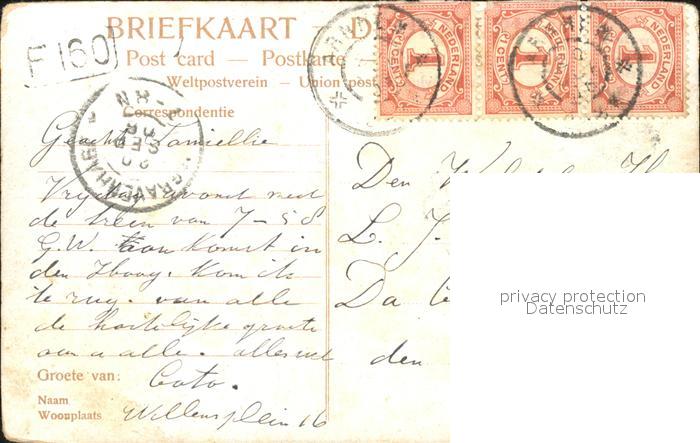 BRIEFKAART
Post card — Postkarte
Weltpostverein — Union post
Correspondentie
F 160
NEDERLAND 1 CENT
NEDERLAND 1 CENT
NEDERLAND 1 CENT
'S GRAVENHAGE
Geachte Familie
Vrijdag avond met
de trein van 7-58
G.W. aan Komst in
den Haag. Kom ik
te rug. van alle
de hartelijke groete
aan u alle. alles
Groete van: Cato.
Naam
Woonplaats Willemsplein 16
Den
L. J.
Da
den
privacy protection
Datenschutz